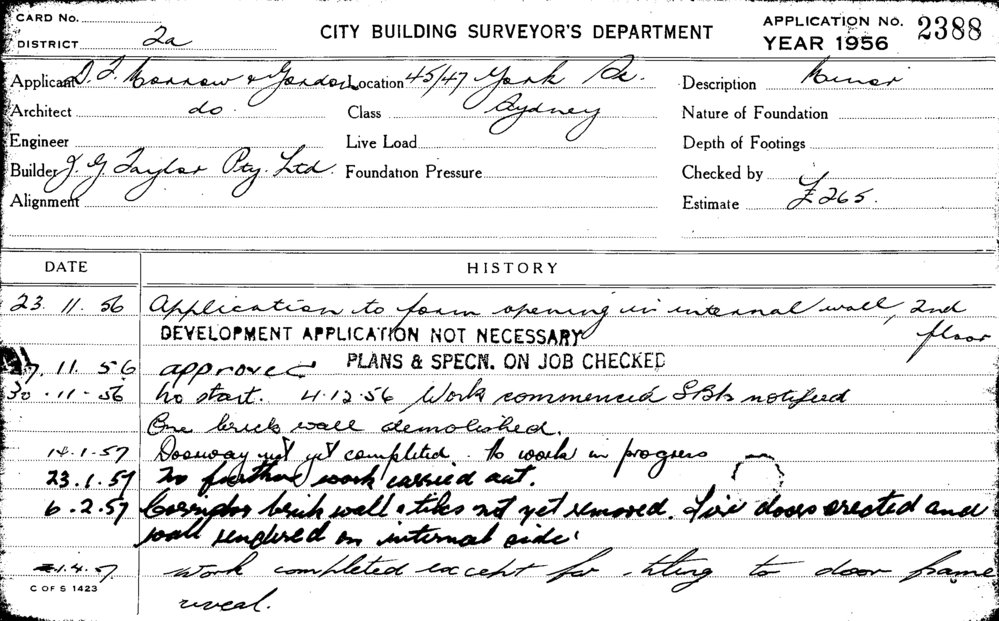 CARD No.
DISTRICT 2a
CITY BUILDING SURVEYOR'S DEPARTMENT
APPLICATION No. 2388
YEAR 1956
Applicant D. T. Morrow & Gordon Location 45/47 York St. Description Minor
Architect do. Class Sydney Nature of Foundation
Engineer Live Load Depth of Footings
Builder J. G. Taylor Pty. Ltd. Foundation Pressure Checked by
Alignment Estimate £265.
DATE HISTORY
23. 11. 56 Application to form opening in internal wall, 2nd
floor
DEVELOPMENT APPLICATION NOT NECESSARY
27. 11. 56 approved PLANS & SPECN. ON JOB CHECKED
30 - 11 - 56 No start. 4.12.56 Work commenced notified
One brick wall demolished.
14.1.57 Doorway not yet completed. No work in progress
23.1.57 No further work carried out.
6.2.57 Corridor brick wall & tiles not yet removed. Fire doors erected and
wall rendered on internal side.
1.4.57 Work completed except for tiling to door frame
reveal.
C OF S 1423